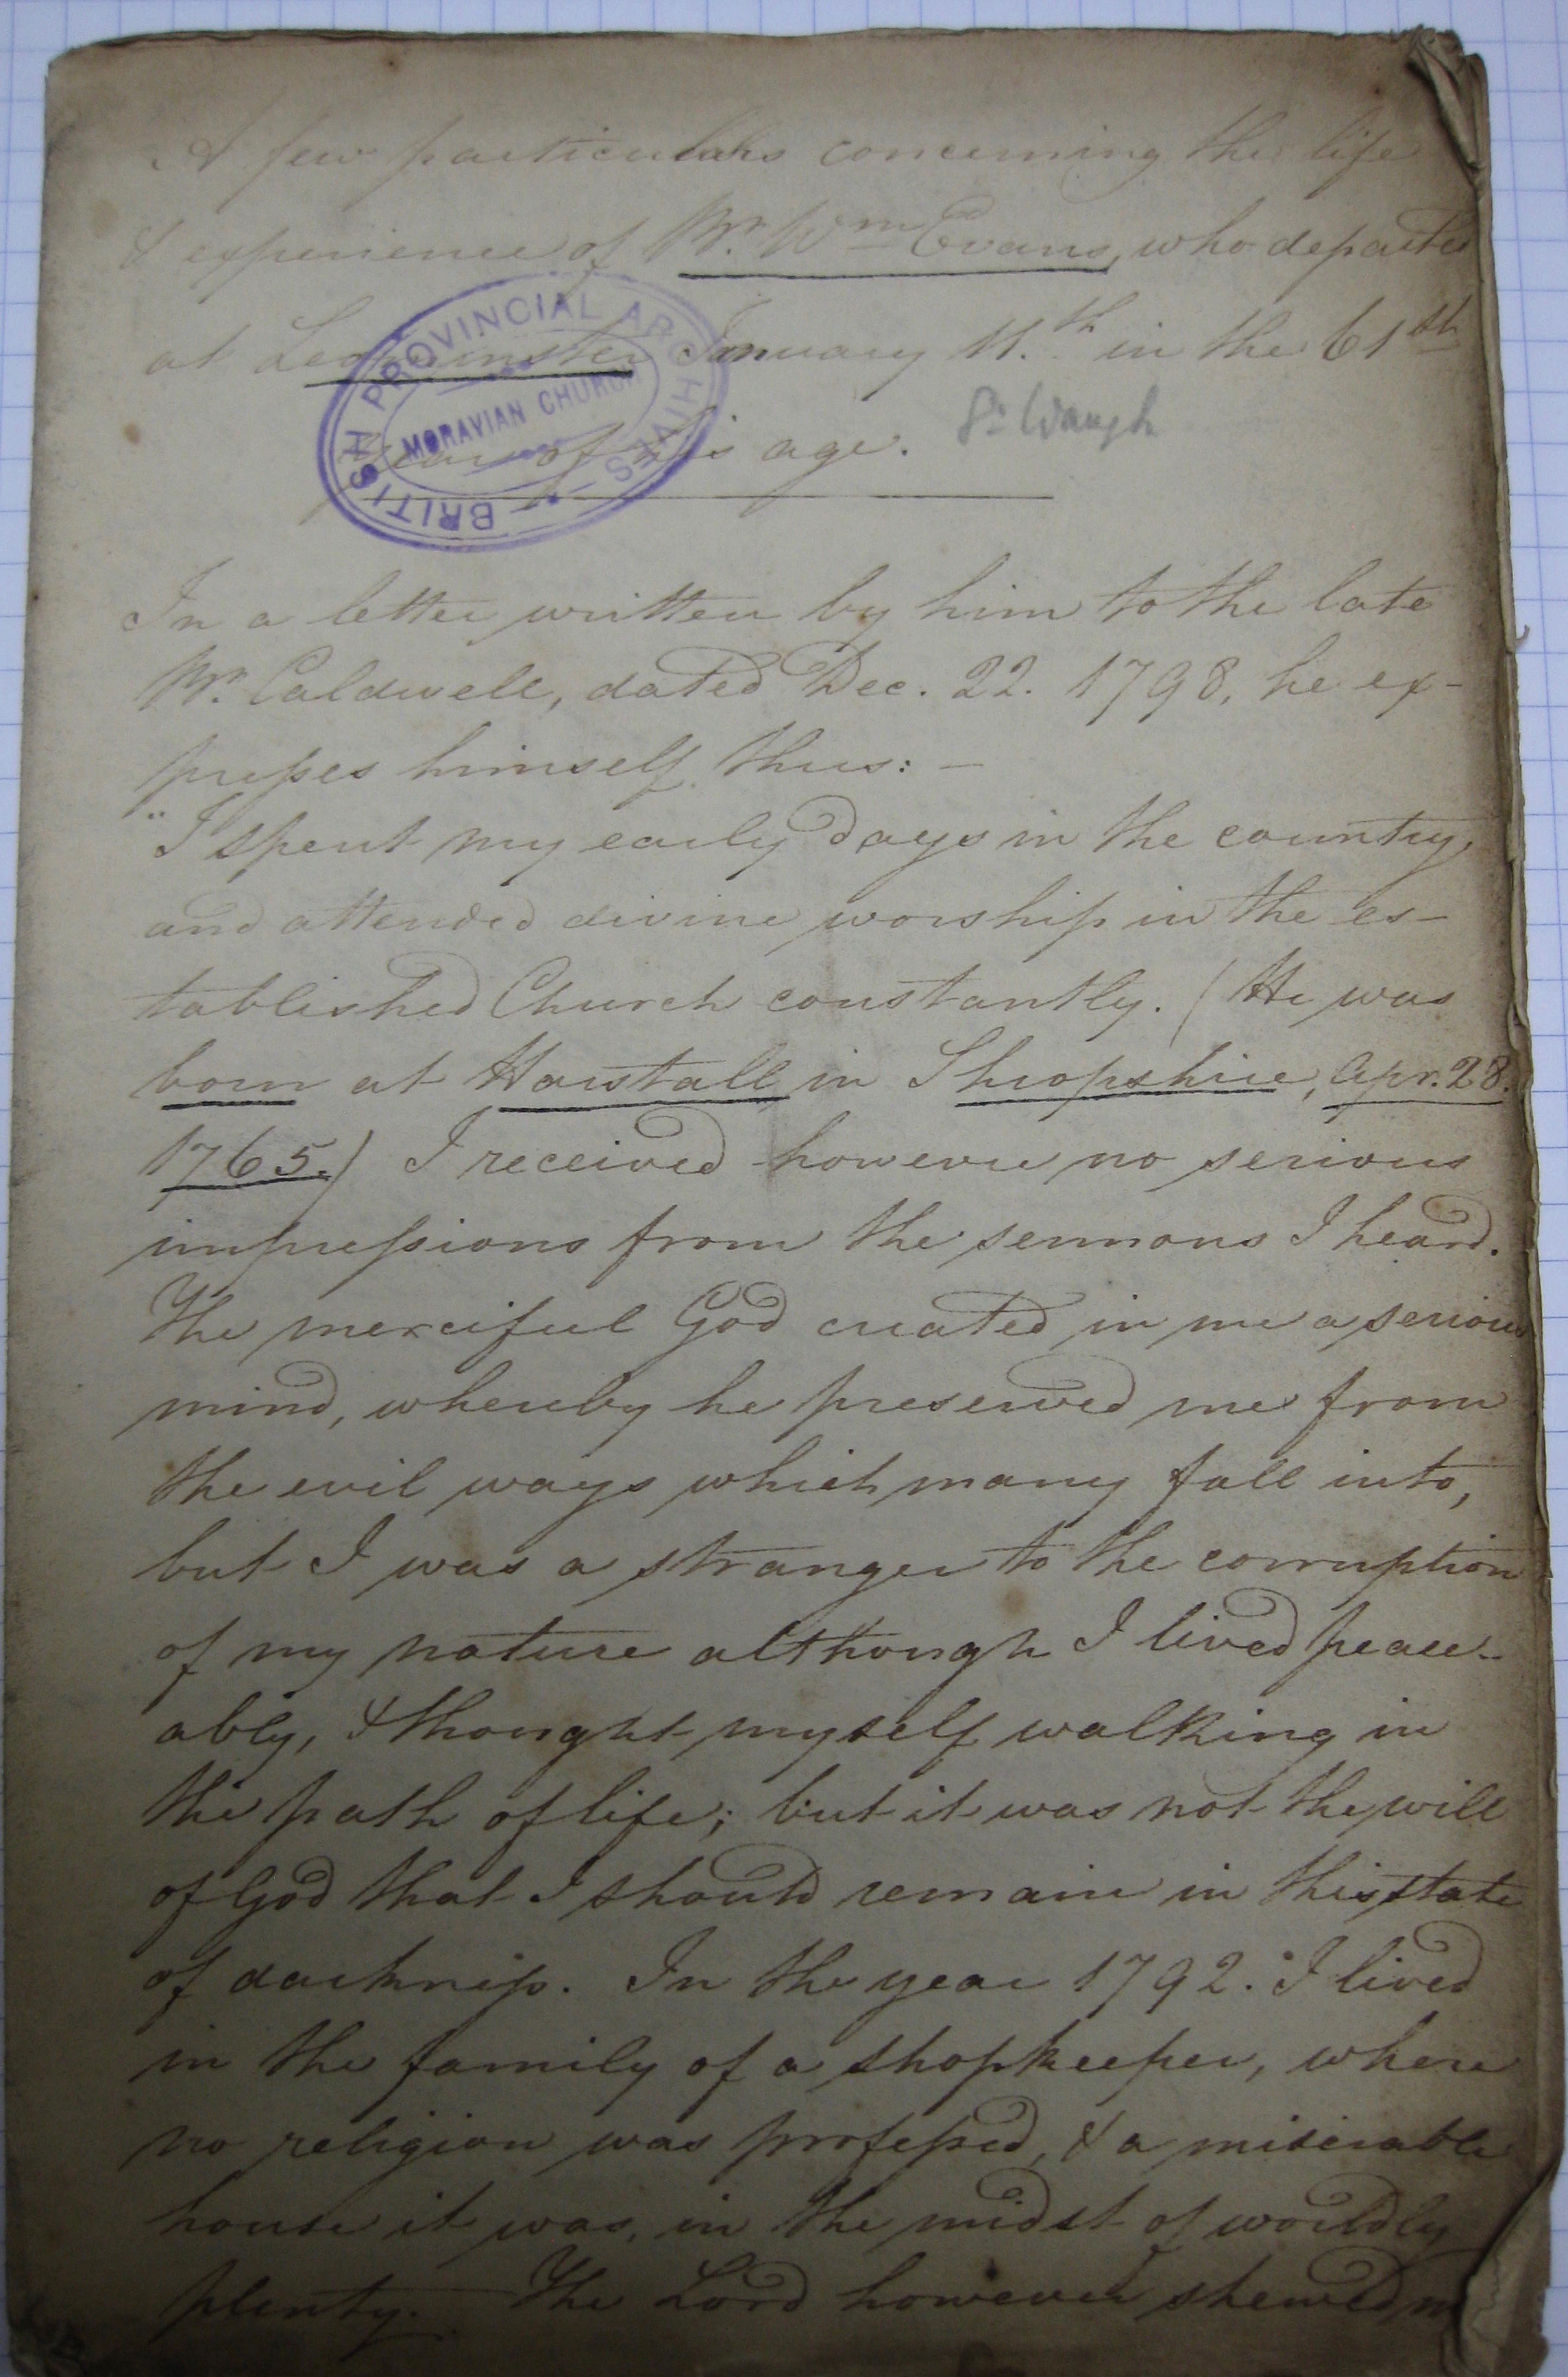 A few particulars concerning the life
& experience of Br. Wm Evans, who departed
at Leominster January 11.th in the 61st
year of his age.
BRITISH PROVINCIAL ARCHIVES
MORAVIAN CHURCH
In a letter written by him to the late
Br. Caldwell, dated Dec. 22. 1798, he ex-
presses himself thus: —
"I spent my early days in the country,
and attended divine worship in the es-
tablished Church constantly. (He was
born at Harstall in Shropshire, Apr. 28.
1765.) I received however no serious
impressions from the sermons I heard.
The merciful God created in me a serious
mind, whereby he preserved me from
the evil ways which many fall into,
but I was a stranger to the corruption
of my nature although I lived peace-
ably, & thought myself walking in
the path of life; but it was not the will
of God that I should remain in this state
of darkness. In the year 1792. I lived
in the family of a shopkeeper, where
no religion was professed, & a miserable
house it was, in the midst of worldly
plenty. The Lord however shewed